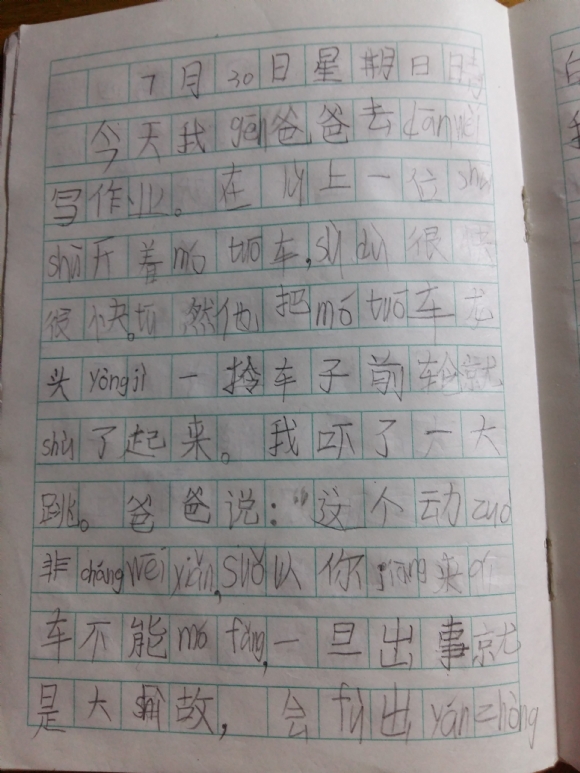 7月30日星期日晴
今天我gēn爸爸去dānwèi
写作业。在lù上一位shū
shū开着mó tuō车,sù dù很快
很快。tū然他把mó tuō车龙
头yòng lì一拎车子前轮就
shù了起来。我吓了一大
跳。爸爸说:“这个动zuò
非cháng wēi xiǎn,suǒ以你jiāng来
车不能mó fǎng,一旦出事就
是大事故,会fù出yán zhòng